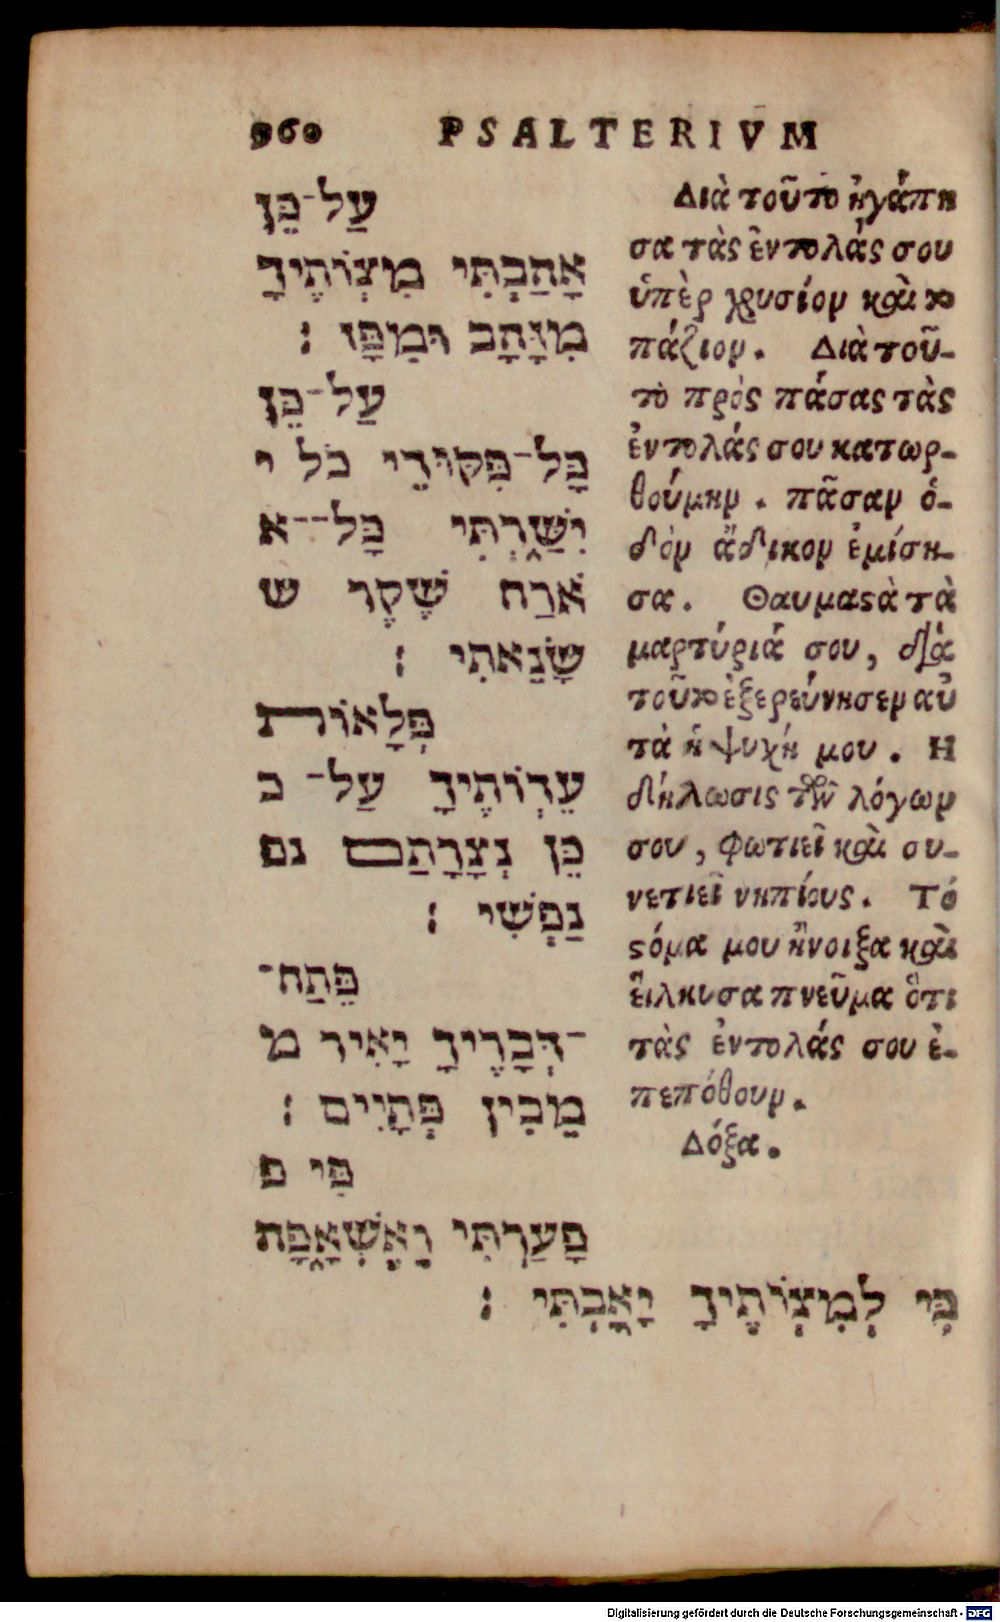 960 PSALTERIVM
עַל־כֵּן
אָהַבְתִּי מִצְוֹתֶיךָ
מִזָּהָב וּמִפָּז :
עַל־כֵּן
כָּל־פִּקּוּדֵי כֹל י
יִשָּׁרְתִּי כָּל־־א
אֹרַח שֶׁקֶר ש
שָׂנֵאתִי :
פְּלָאוֹת
עֵדְוֹתֶיךָ עַל־ כ
כֵּן נְצָרָתַם נפ
נַפְשִׁי :
פֵּתַח־
־דְּבָרֶיךָ יָאִיר מ
מֵבִין פְּתָיִים :
פִּי פ
פָעַרְתִּי וָאֶשְׁאָפָה
כִּי לְמִצְוֹתֶיךָ יָאָבְתִּי :
Διὰ τοῦτο ἠγάπη
σα τὰς ἐντολάς σου
ὑπὲρ χρυσίον καὶ το
πάζιον. Διὰ τοῦ-
το πρὸς πάσας τὰς
ἐντολάς σου κατωρ-
θούμην. πᾶσαν ὁ-
δὸν ἄδικον ἐμίση-
σα. Θαυμαϛὰ τὰ
μαρτύριά σου, διὰ
τοῦτο ἐξερεύνησεν αὐ
τὰ ἡ ψυχή μου. Η
δήλωσις τῶν λόγων
σου, φωτιεῖ καὶ συ-
νετιεῖ νηπίους. Τό
ϛόμα μου ἤνοιξα καὶ
εἵλκυσα πνεῦμα ὅτι
τὰς ἐντολάς σου ἐ-
πεπόθουν.
Δόξα.
Digitalisierung gefördert durch die Deutsche Forschungsgemeinschaft - DFG